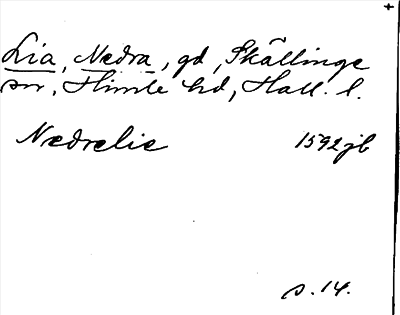 Lia, Nedra, gd, Skällinge
sn, Himle hd, Hall. l.
Nedrelie 1592 jb
s. 14.